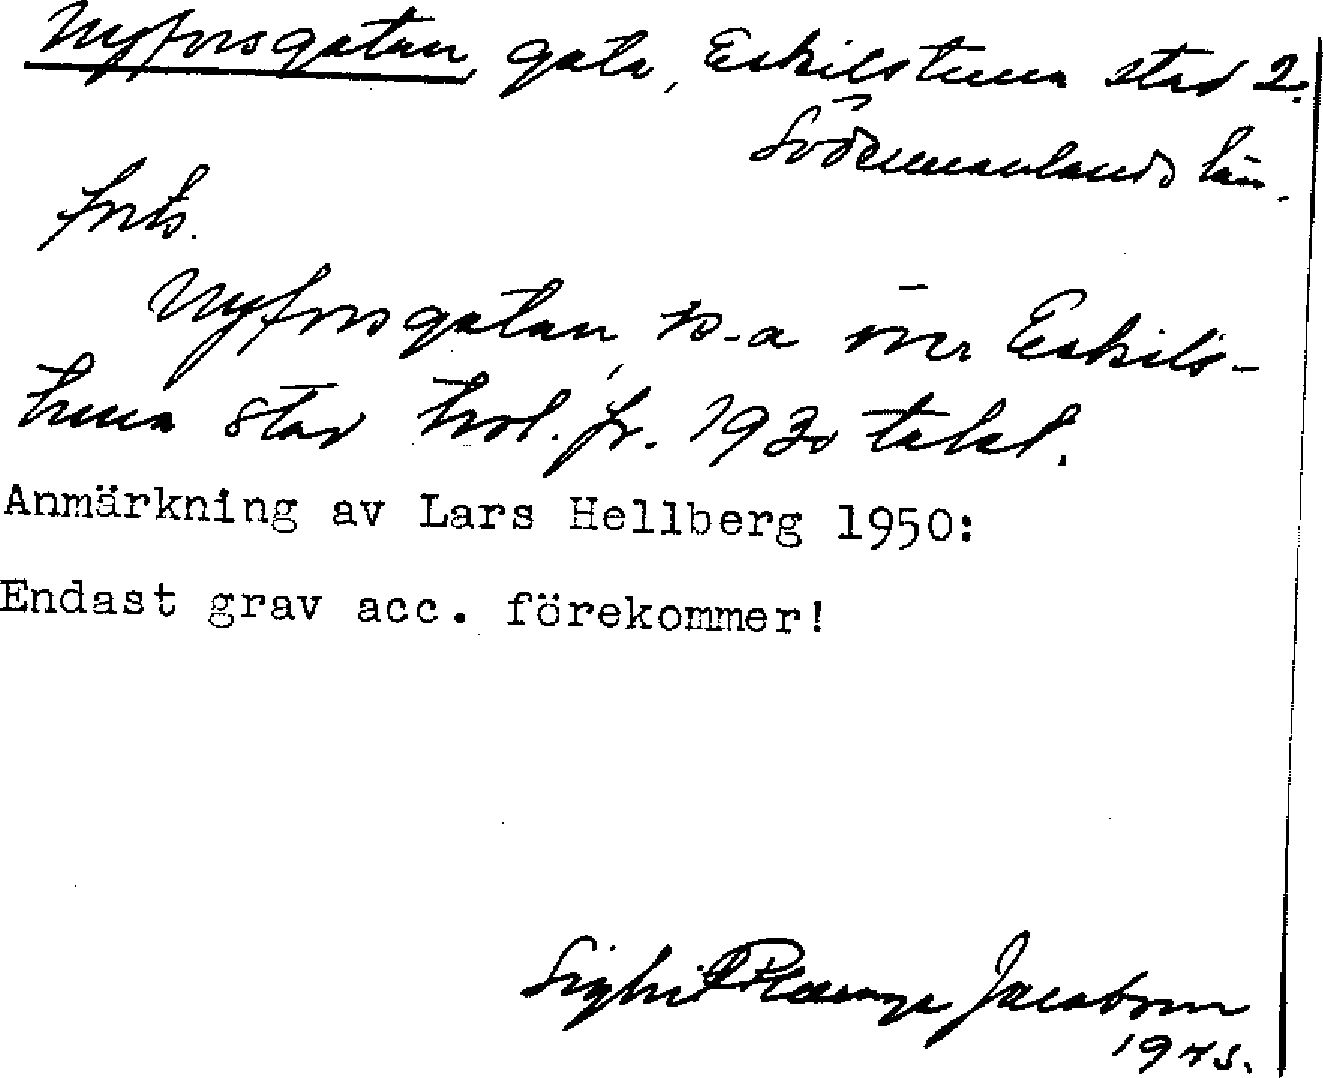 Nyforsgatan, gata, Eskilstuna stad 2.
Södermanlands län.
forts.
Nyforsgatan, to-a över Eskils-
tuna stad trol. fr. 1930 talet.
Anmärkning av Lars Hellberg 1950:
Endast grav acc. förekommer!
Jacobson
1945.